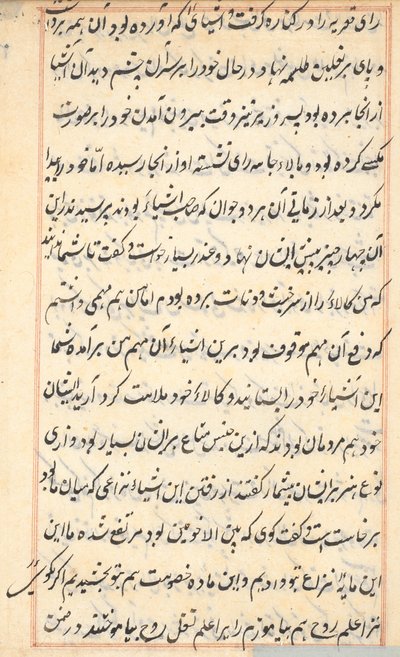 رای قویه را در کناره گرفت و اشیای که آورده بود آن همه برداشت
و پای بر نعلین نهاد و در حال خود را بر سر آن دید آن اشیا
از آنجا برده بود پسر وزیر نیز وقت بیرون آمدن خود را بر صورت
مگسی کرده بود و بالاء جامه رای نشسته او از آنجا رسیده اما خود را پیدا
نکرد و بعد از زمانی آن هر دو جوان که صاحب اشیاء بودند پرسیدند این
آن چهار چیز پیش ایشان نهاد و عذر بسیار خواست و گفت تا شما
که من کالاء را از سر خیانت برده بودم اما من هم مهمی داشتم
که دفع آن مهم موقوف بود برین اشیاء آن مهم من برآمده شما
این اشیاء خود را بستانید و کالاء خود ملامت کرد ایشان
خود هم مردمان بودند که از این جنس متاع بر ایشان بسیار بود و ازی
نوع هنر بر ایشان بیشمار گفتند از رفتن این اشیاء نزاعی که میان ما بود
برخاست است و گفت گوی که بین الاخوین بود مرتفع شده ما این
این مایه نزاع بتو دادیم و این ماده خصومت هم بتو بخشیدیم اگر بگوئی
ترا علم روح هم بیاموزیم را برا علم نقل روح بیاموختند در ضمن